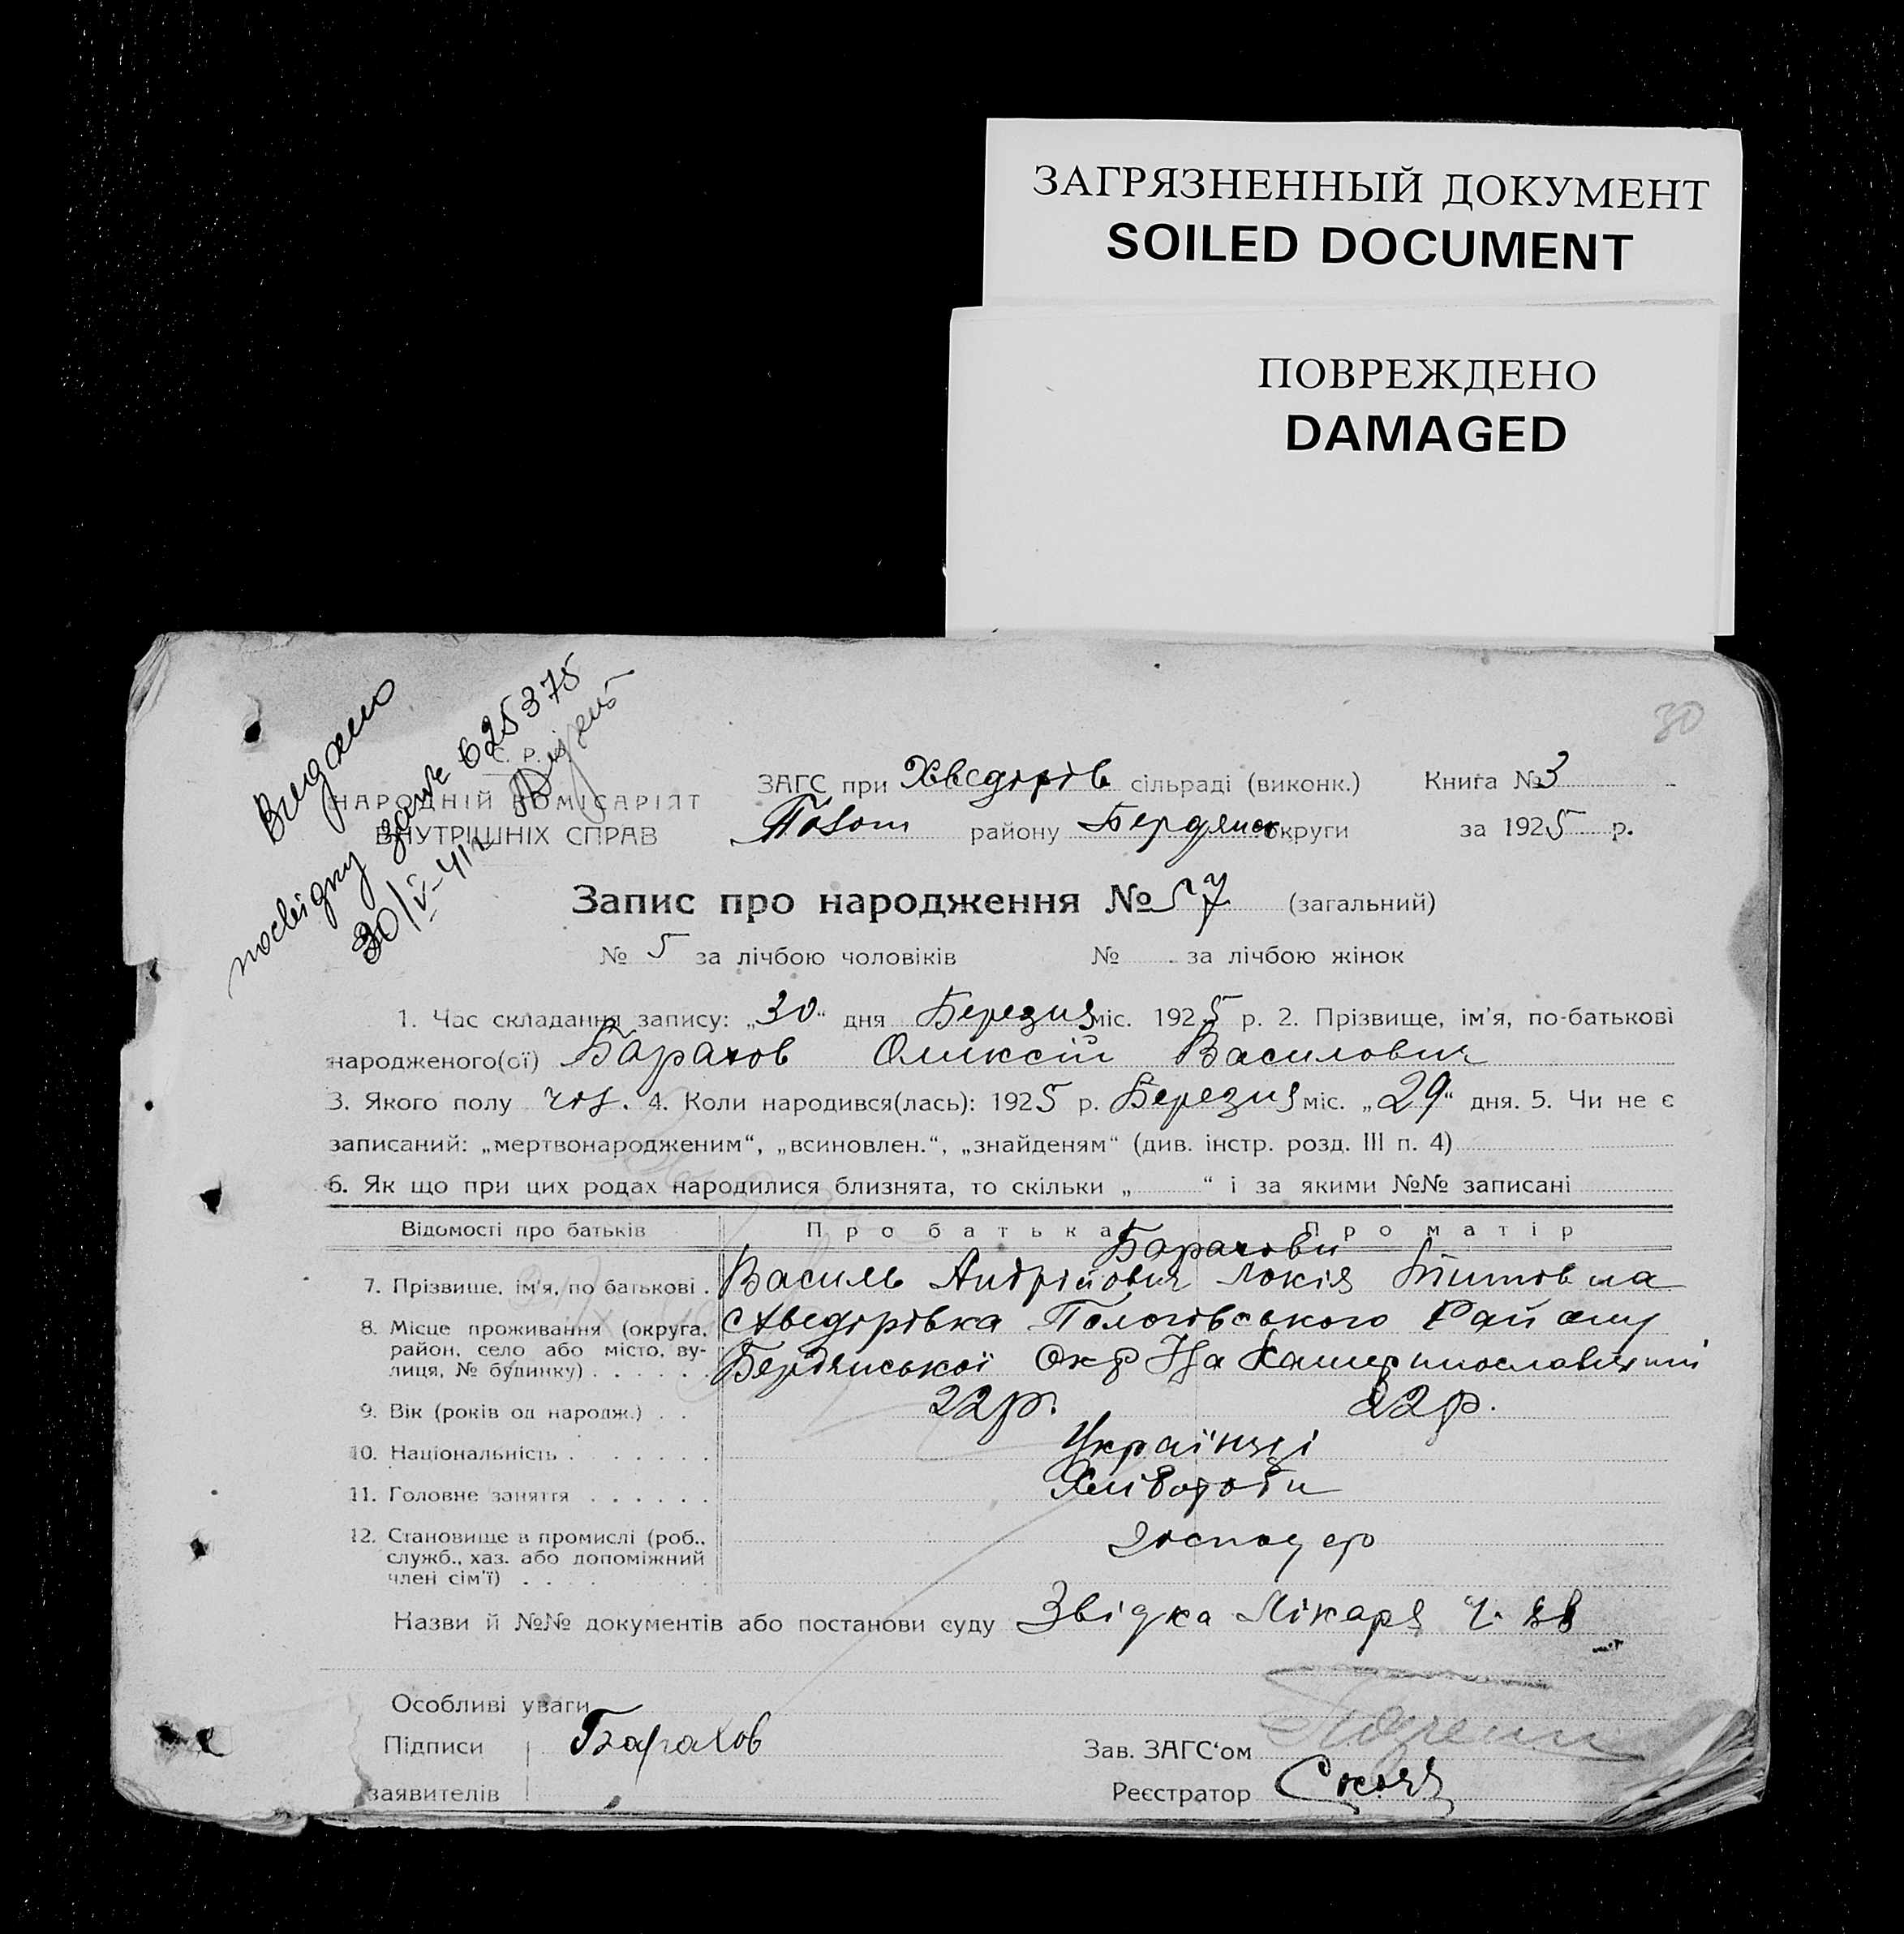 ЗАГРЯЗНЕННЫЙ ДОКУМЕНТ
SOILED DOCUMENT
ПОВРЕЖДЕНО
DAMAGED
30
Видано
посвідку 625375
30/IV-41
С. Р. Р.
НАРОДНІЙ КОМІСАРІЯТ
ВНУТРІШНІХ СПРАВ
ЗАГС при Хведорів сільраді (виконк.) Книга № 3
Полог району Бердянськ округи за 1925 р.
Запис про народження № 57 (загальний)
№ 5 за лічбою чоловіків № за лічбою жінок
1. Час складання запису: „30“ дня Березня міс. 1925 р. 2. Прізвище, ім'я, по-батькові
народженого(ої) Барахов Олексій Василович
3. Якого полу чол. 4. Коли народився(лась): 1925 р. Березня міс. „29“ дня. 5. Чи не є
записаний: „мертвонародженим“, „всиновлен.“, „знайденям“ (див. інстр. розд. III п. 4)
6. Як що при цих родах народилися близнята, то скільки „ “ і за якими №№ записані
Відомості про батьків Про батька Про матір
Барахови
7. Прізвище, ім'я, по батькові . Василь Андрійович Локія Титовна
8. Місце проживання (округа, Хведорівка Пологівського Району
район, село або місто, ву- Бердянської Окр На Катеринославщині
лиця, № будинку) . . . . . .
9. Вік (років од народж.) . . 22 р. 22 р.
10. Національність . . . . . . . Українці
11. Головне заняття . . . . . . Хлібороби
12. Становище в промислі (роб., господар
служб., хаз. або допоміжний
члені сім'ї) . . .
Назви й №№ документів або постанови суду Звідка Лікаря ч. 88
Особливі уваги
Підписи Барахов Зав. ЗАГС'ом
заявителів Реєстратор